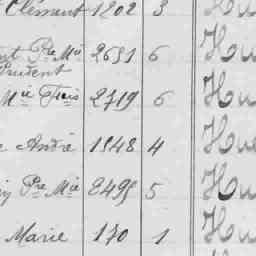 Clément 1202 3 Hu
Pre Mie 2691 6 Hu
Prudent
Mie Frcis 2719 6 Hu
André 1848 4 Hu
Pre Mie 2495 5 Hu
Marie 170 1 Hu